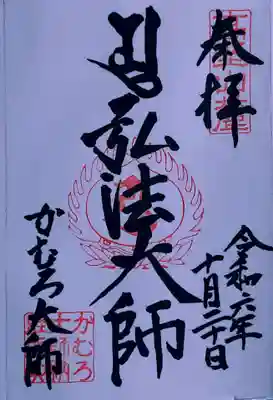 奉拝
令和六年
十月二十日
弘法大師
かむろ大師
かむろ